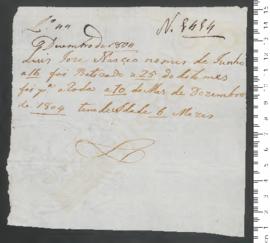 Lº 44 N. 8484
9 Dezembro de 1804
Luis Jose Nasceo no mes de Junho
a 16 foi Batizado a 25 do dito mes
foi pª a Roda a 10 do Mes de Dezembro
de 1804 tem de Idade 6 Mezes